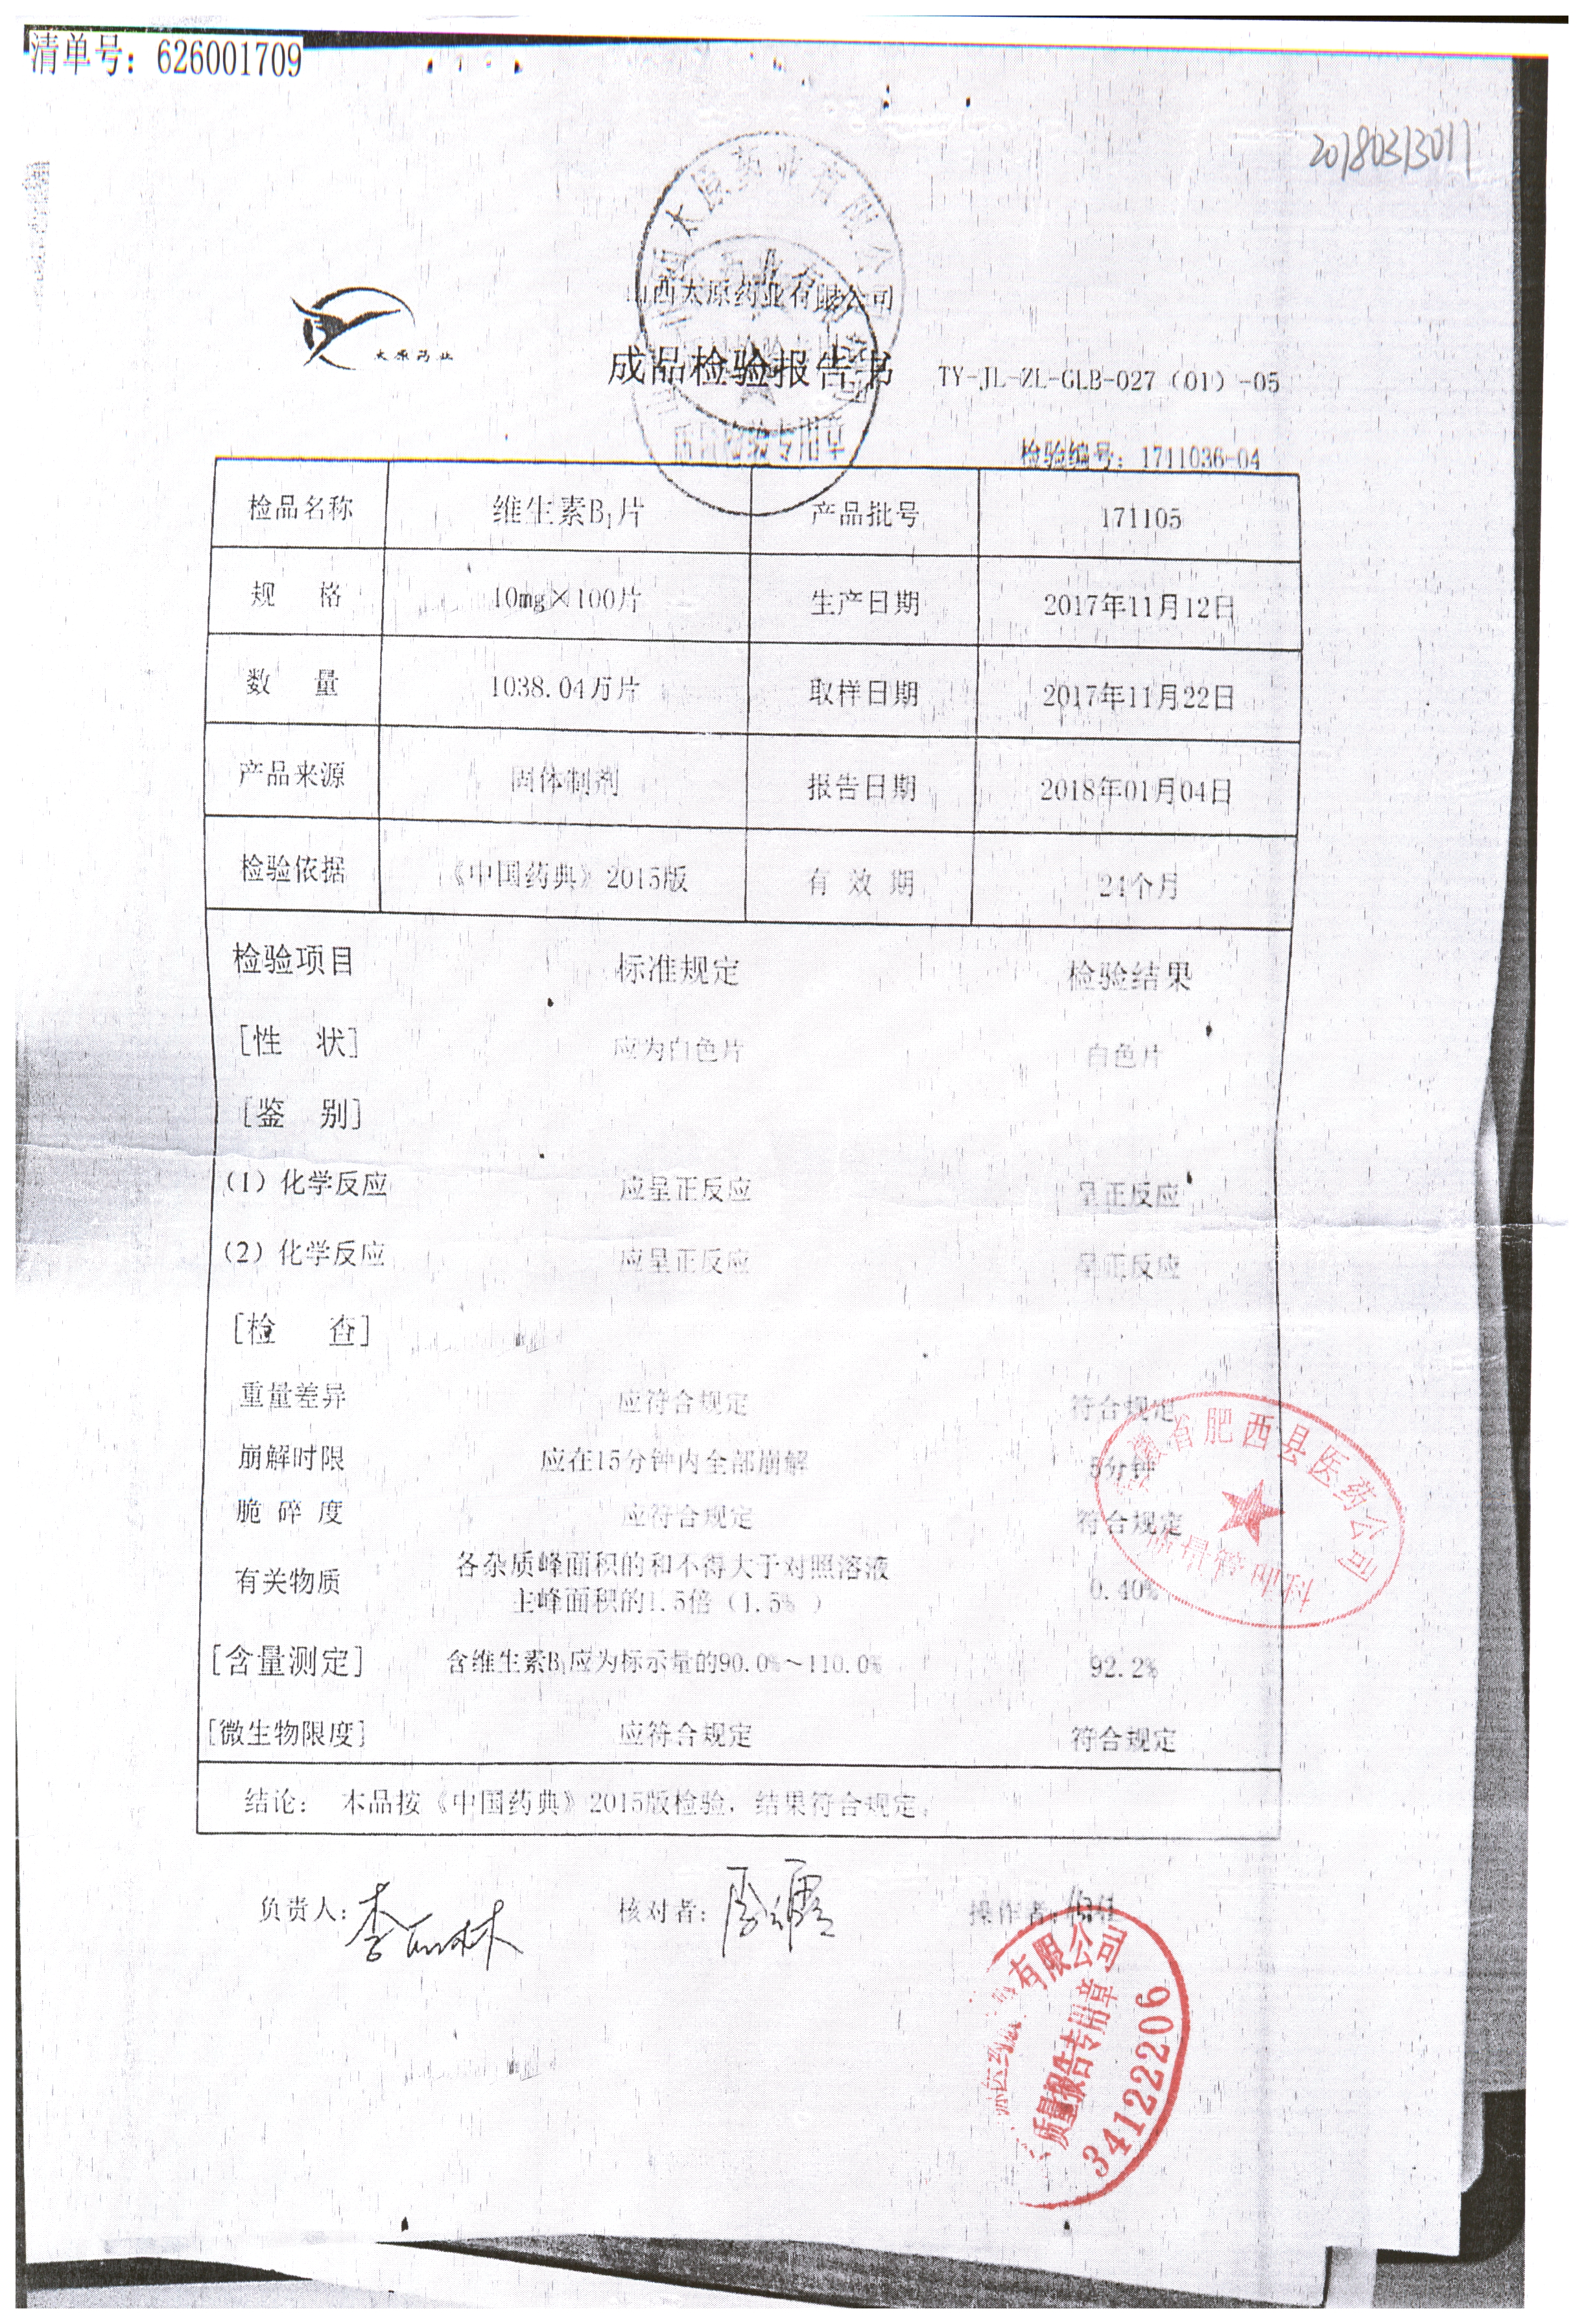 清单号：626001709
20180313011
太原药业
山西太原药业有限公司
成品检验报告书 TY-JL-ZL-GLB-027（01）-05
检验编号：1711036-04
检品名称 维生素B₁片 产品批号 171105
规 格 10mg×100片 生产日期 2017年11月12日
数 量 1038.04万片 取样日期 2017年11月22日
产品来源 固体制剂 报告日期 2018年01月04日
检验依据 《中国药典》2015版 有 效 期 24个月
检验项目 标准规定 检验结果
[性 状] 应为白色片 白色片
[鉴 别]
（1）化学反应 应呈正反应 呈正反应
（2）化学反应 应呈正反应 呈正反应
[检 查]
重量差异 应符合规定 符合规定
崩解时限 应在15分钟内全部崩解 5分钟
脆 碎 度 应符合规定 符合规定
有关物质 各杂质峰面积的和不得大于对照溶液 0.40%
主峰面积的1.5倍（1.5%）
[含量测定] 含维生素B₁应为标示量的90.0%～110.0% 92.2%
[微生物限度] 应符合规定 符合规定
结论： 本品按《中国药典》2015版检验，结果符合规定。
负责人： 核对者： 操作者：
太原药业有限公司
质量检验专用章
安徽省肥西县医药公司
质量管理科
医药 有限公司
质量报告专用章
34122206